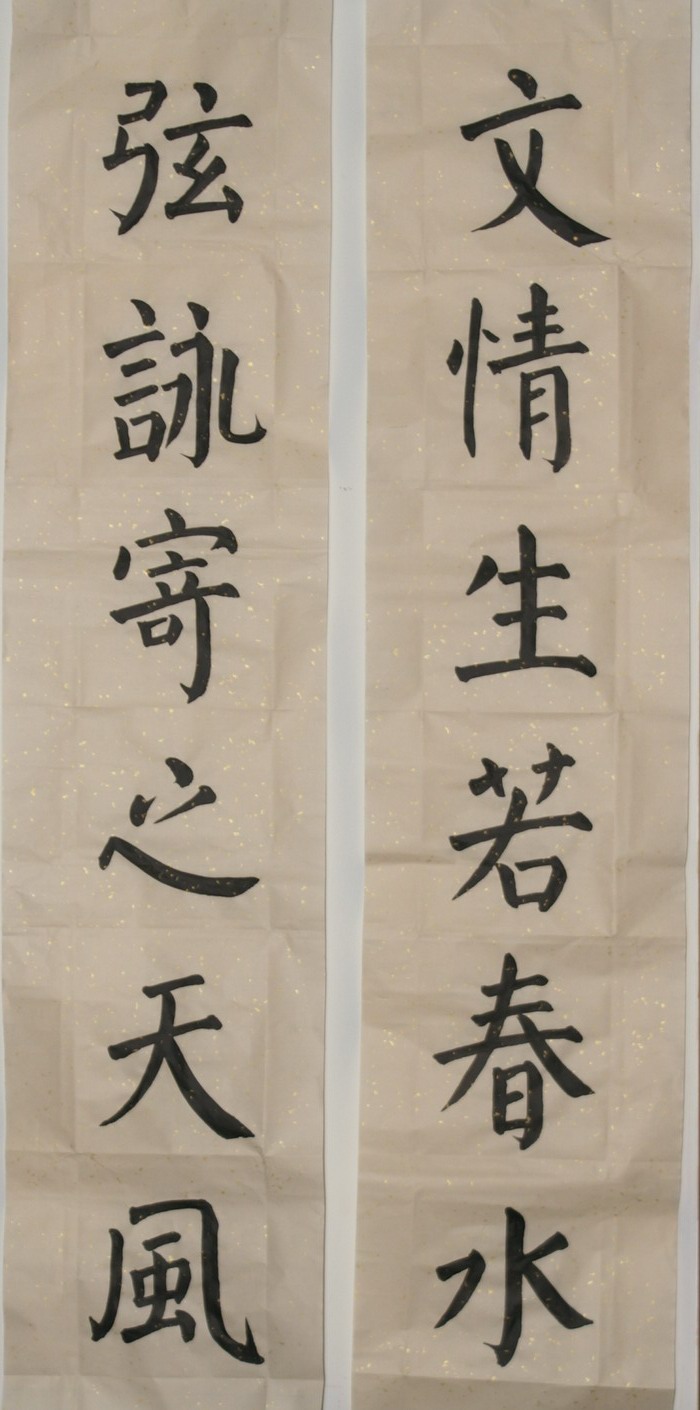 文情生若春水
弦詠寄之天風